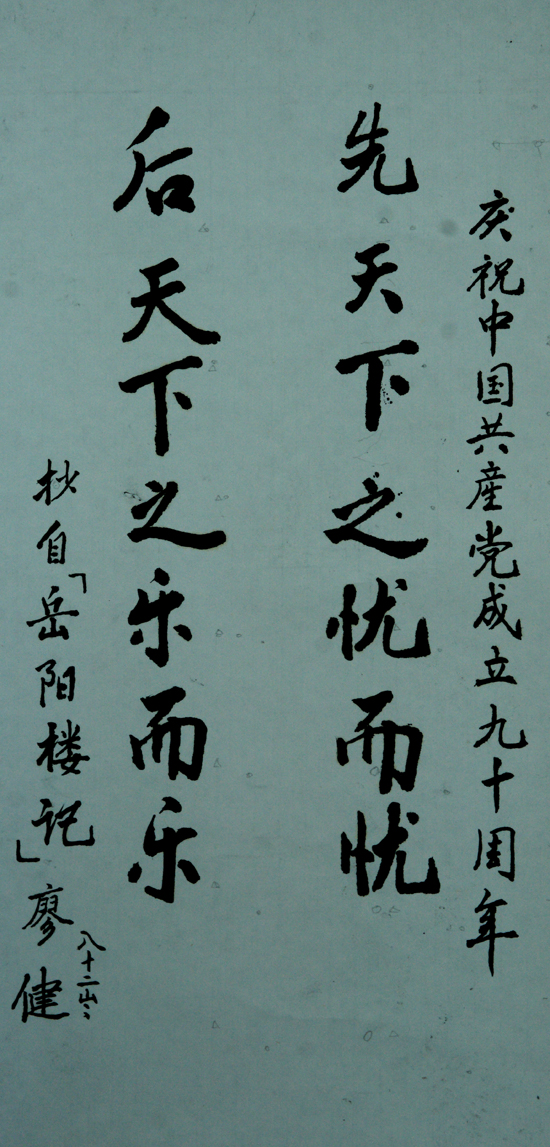 庆祝中国共産党成立九十周年
先天下之忧而忧
后天下之乐而乐
抄自「岳阳楼记」廖健
八十二